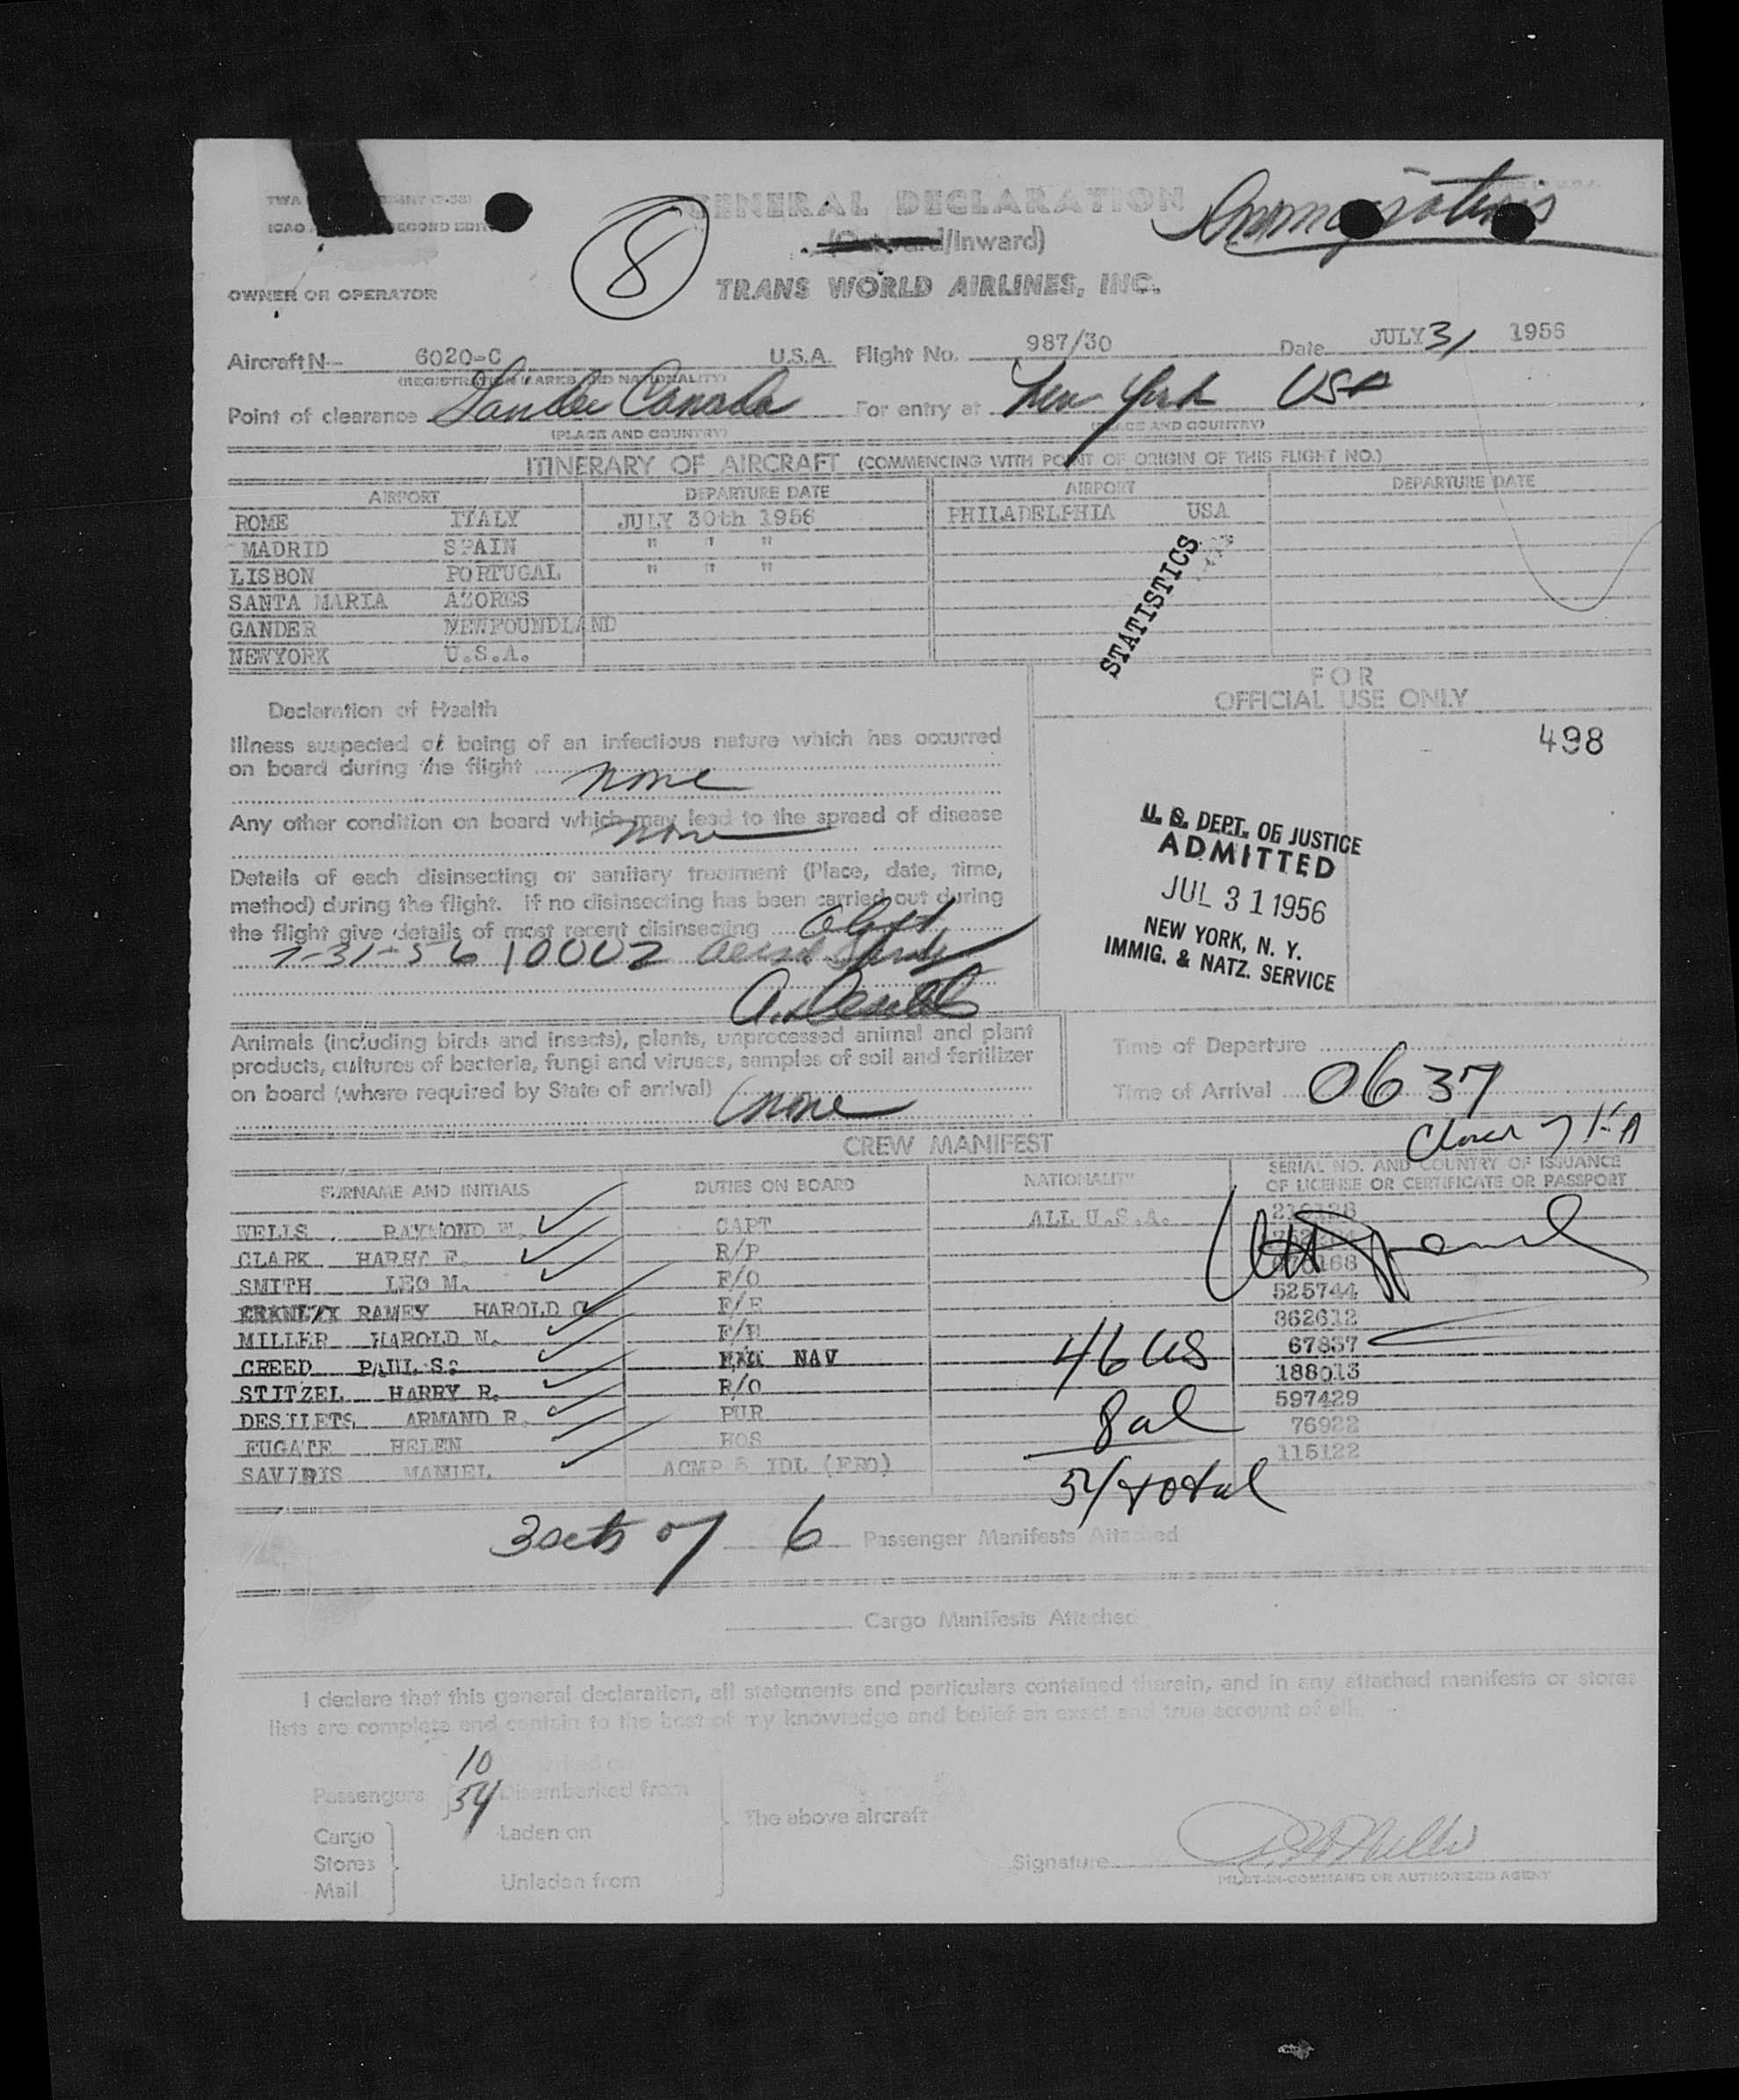 TWA
ICAO SECOND EDIT
8
GENERAL DECLARATION
(Outward/Inward)
Immigration
TRANS WORLD AIRLINES, INC.
OWNER OR OPERATOR
Aircraft N- 6020-C U.S.A. Flight No. 987/30 Date JULY 31 1956
(REGISTRATION MARKS AND NATIONALITY)
Point of clearance Gander Canada For entry at New York USA
(PLACE AND COUNTRY) (PLACE AND COUNTRY)
ITINERARY OF AIRCRAFT (COMMENCING WITH POINT OF ORIGIN OF THIS FLIGHT NO.)
AIRPORT DEPARTURE DATE AIRPORT DEPARTURE DATE
ROME ITALY JULY 30th 1956 PHILADELPHIA USA
MADRID SPAIN " " "
LISBON PORTUGAL " " "
SANTA MARIA AZORES
GANDER NEWFOUNDLAND
NEWYORK U.S.A.
STATISTICS
FOR
OFFICIAL USE ONLY
498
Declaration of Health
Illness suspected of being of an infectious nature which has occurred
on board during the flight none
Any other condition on board which may lead to the spread of disease
none
Details of each disinsecting or sanitary treatment (Place, date, time,
method) during the flight. If no disinsecting has been carried out during
the flight give details of most recent disinsecting aloft
7-31-56 1000Z
U. S. DEPT. OF JUSTICE
ADMITTED
JUL 31 1956
NEW YORK, N. Y.
IMMIG. & NATZ. SERVICE
Animals (including birds and insects), plants, unprocessed animal and plant
products, cultures of bacteria, fungi and viruses, samples of soil and fertilizer
on board (where required by State of arrival) none
Time of Departure
Time of Arrival 0637
CREW MANIFEST
SURNAME AND INITIALS DUTIES ON BOARD NATIONALITY SERIAL NO. AND COUNTRY OF ISSUANCE
OF LICENSE OR CERTIFICATE OR PASSPORT
WELLS RAYMOND CAPT ALL U.S.A.
CLARK HARRY F. R/P
SMITH LEO M. F/O
RAMEY HAROLD F/E 525744
MILLER HAROLD N. F/E 862612
CREED PAUL S. NAV 67837
STITZEL HARRY R. R/O 188013
DESILETS ARMAND R. PUR 597429
FUGATE HELEN HOS 76922
SAVIDIS MANUEL ACMP IDL (FRO) 115122
46 US
8 al
54 total
3 sets of 6 Passenger Manifests Attached
Cargo Manifests Attached
I declare that this general declaration, all statements and particulars contained therein, and in any attached manifests or stores
lists are complete and contain to the best of my knowledge and belief an exact and true account of all
10
Passengers 54 Disembarked from
The above aircraft
Cargo Laden on
Stores
Mail Unladen from
Signature
PILOT-IN-COMMAND OR AUTHORIZED AGENT